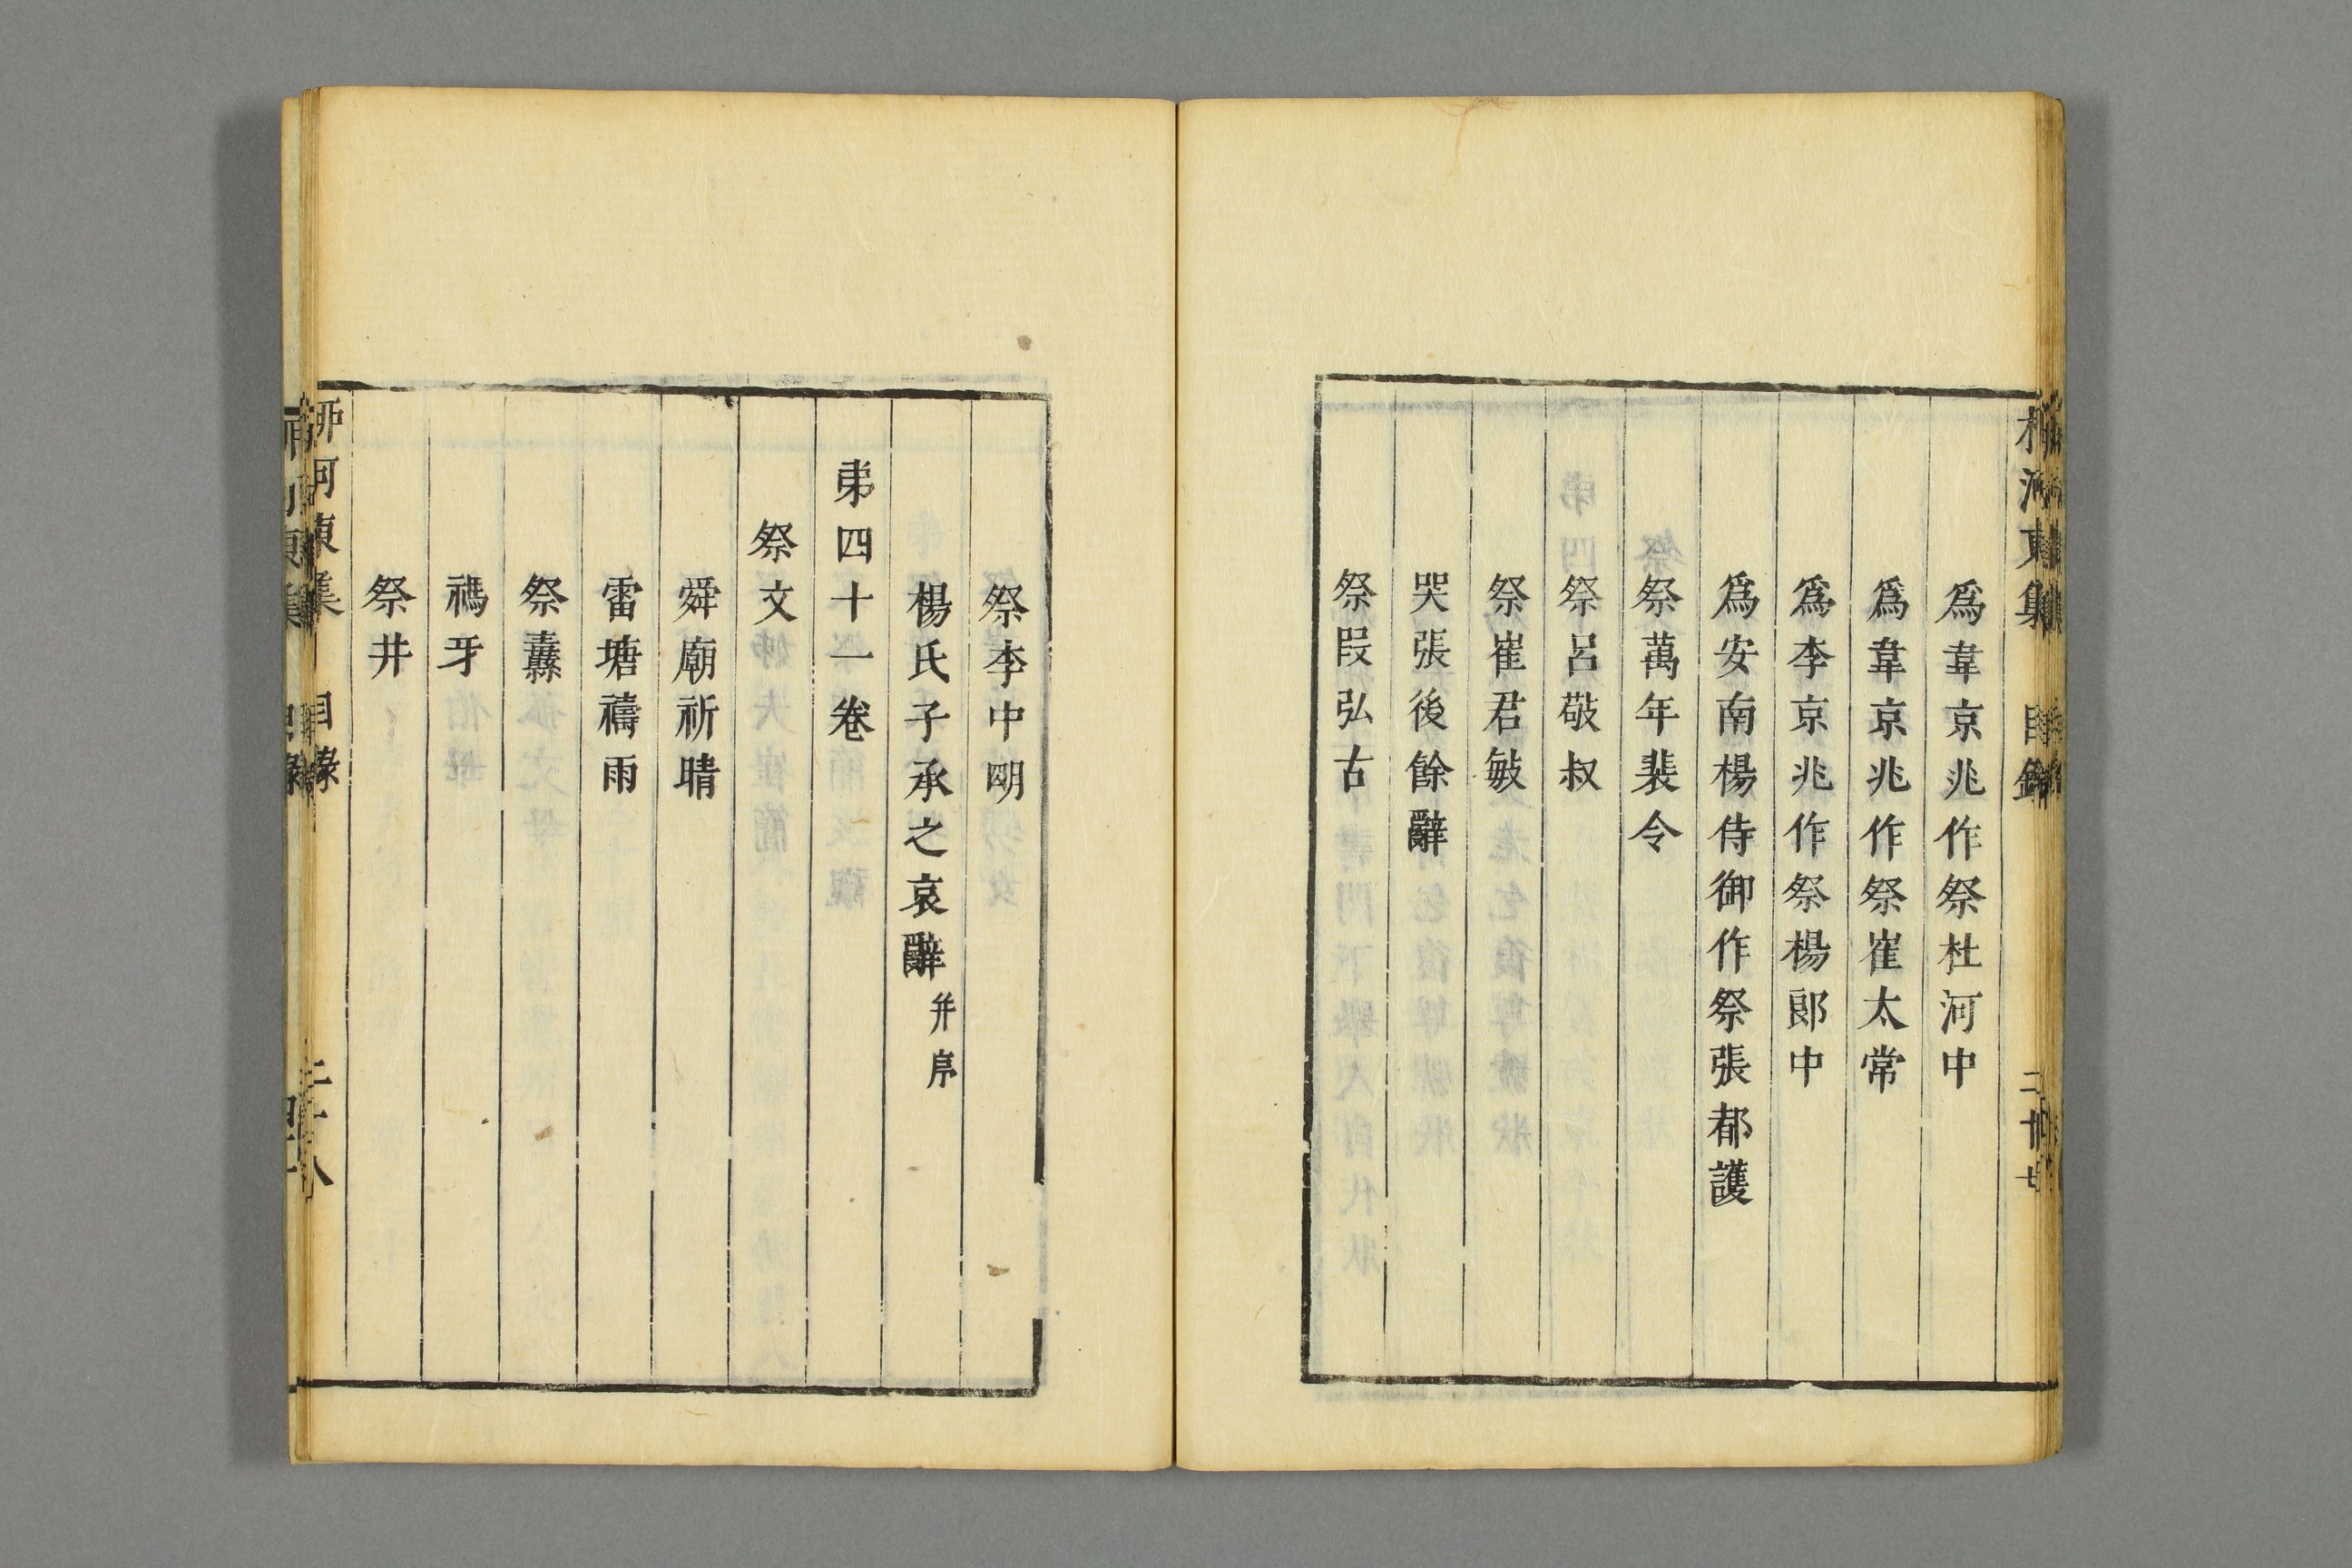 爲韋京兆作祭杜河中
爲韋京兆作祭崔太常
爲李京兆作祭楊郎中
爲安南楊侍御作祭張都護
祭萬年裴令
祭呂敬叔
祭崔君敏
哭張後餘辭
祭段弘古
祭李中明
楊氏子承之哀辭 并序
弟四十一卷
祭文
舜廟祈晴
雷塘禱雨
祭纛
禡牙
祭井
柳河東集 目錄 二十八